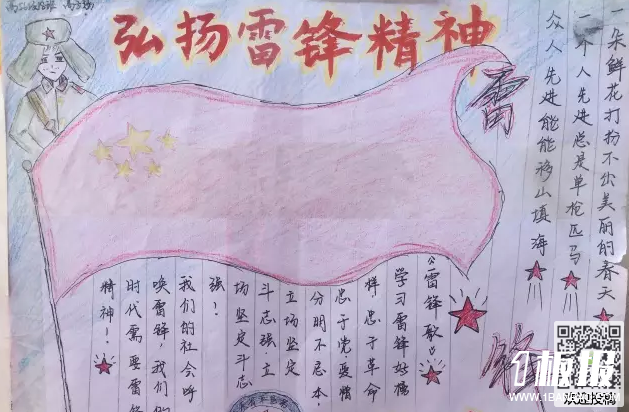 弘扬雷锋精神
雷
一朵鲜花打扮不出美丽的春天
一个人先进总是单枪匹马
众人先进能能移山填海
《雷锋歌》
学习雷锋好榜
样忠于革命
忠于党·爱憎
分明不忘本·
立场坚定
斗志强·立
场坚定斗志
强！
我们的社会呼
唤雷锋,我们的
时代需要雷锋
精神！
1板报